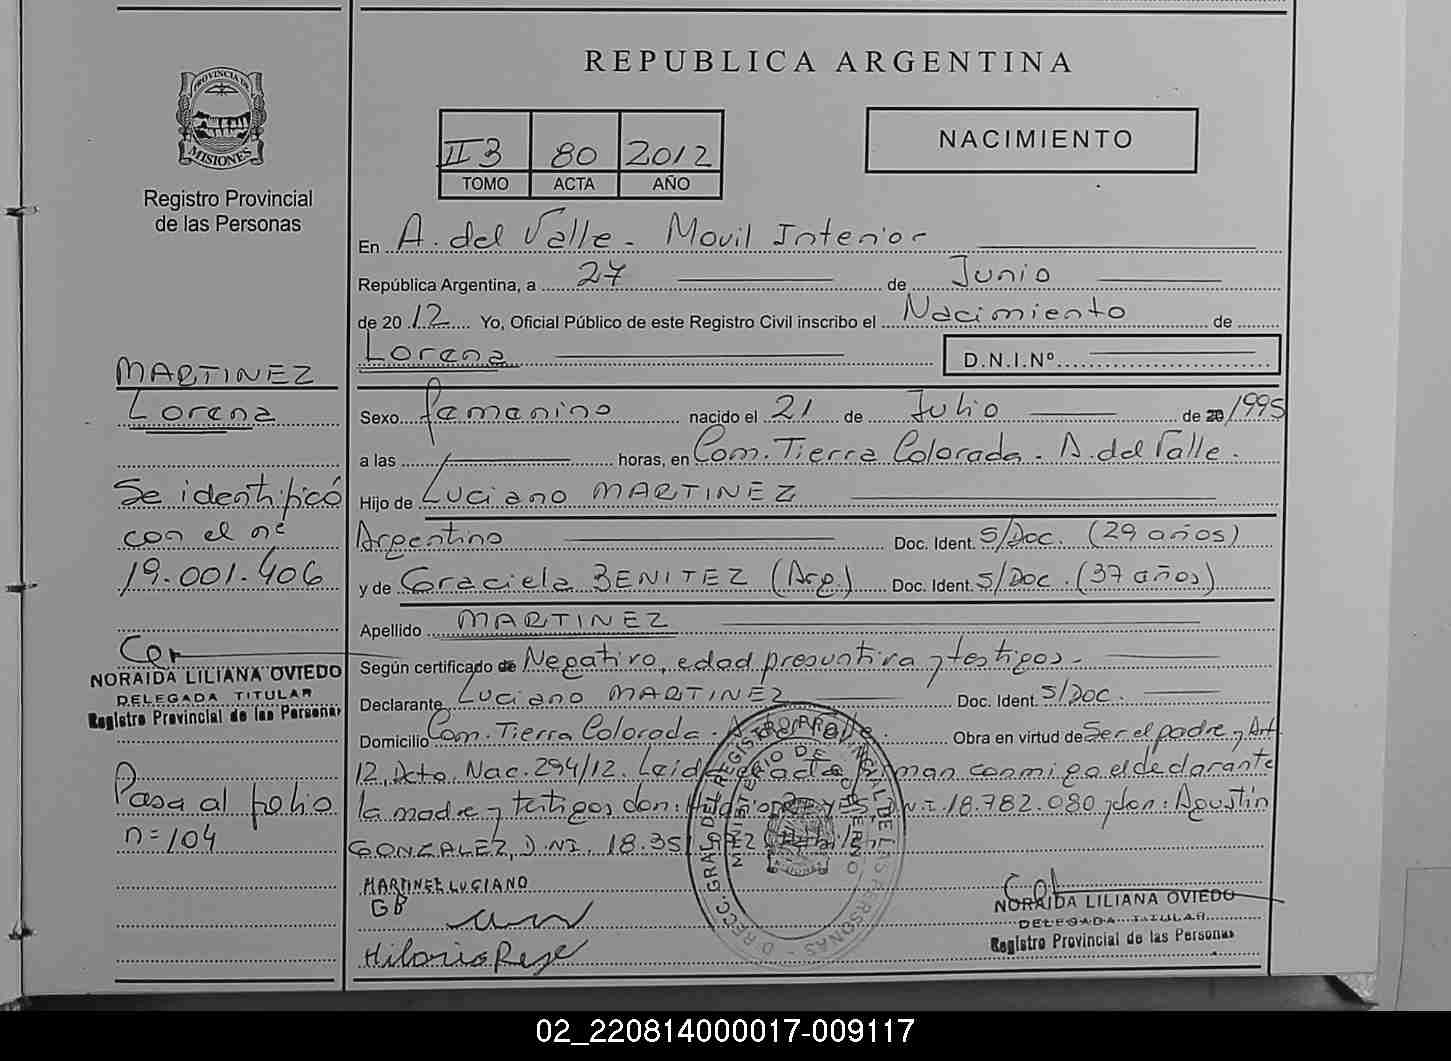 REPUBLICA ARGENTINA
PROVINCIA DE
MISIONES
Registro Provincial
de las Personas
II B 80 2012
TOMO ACTA AÑO
NACIMIENTO
En A. del Valle - Movil Interior
República Argentina, a 27 de Junio
de 20 12 Yo, Oficial Público de este Registro Civil inscribo el Nacimiento de
Lorena D.N.I.Nº
MARTINEZ
Lorena
Sexo femenino nacido el 21 de Julio de 20 1995
a las horas, en Com. Tierra Colorada - A. del Valle.
Hijo de Luciano MARTINEZ
Argentino Doc. Ident. S/Doc. (29 años)
y de Graciela BENITEZ (Arg.) Doc. Ident. S/Doc. (37 años)
Apellido MARTINEZ
Según certificado de Negativo, edad presuntiva y testigos -
Declarante Luciano MARTINEZ Doc. Ident. S/Doc.
Domicilio Com. Tierra Colorada - A. del Valle. Obra en virtud de Ser el padre y Art.
12, Acto. Nac. 294/12. Leída el acta firman conmigo el declarante
la madre y testigos don: D.N.I. 18.782.080 y don: Agustín
GONZALEZ, D.NI. 18.35
Se identificó
con el nº
19.001.406
NORAIDA LILIANA OVIEDO
DELEGADA TITULAR
Registro Provincial de las Personas
Pasa al folio
n=104
MARTINEZ LUCIANO
GB
Hilario Reye
DIRECC. GRAL. DEL REGISTRO PROVINCIAL DE LAS PERSONAS
MINISTERIO DE GOBIERNO
NORAIDA LILIANA OVIEDO
DELEGADA TITULAR
Registro Provincial de las Personas
02_220814000017-009117